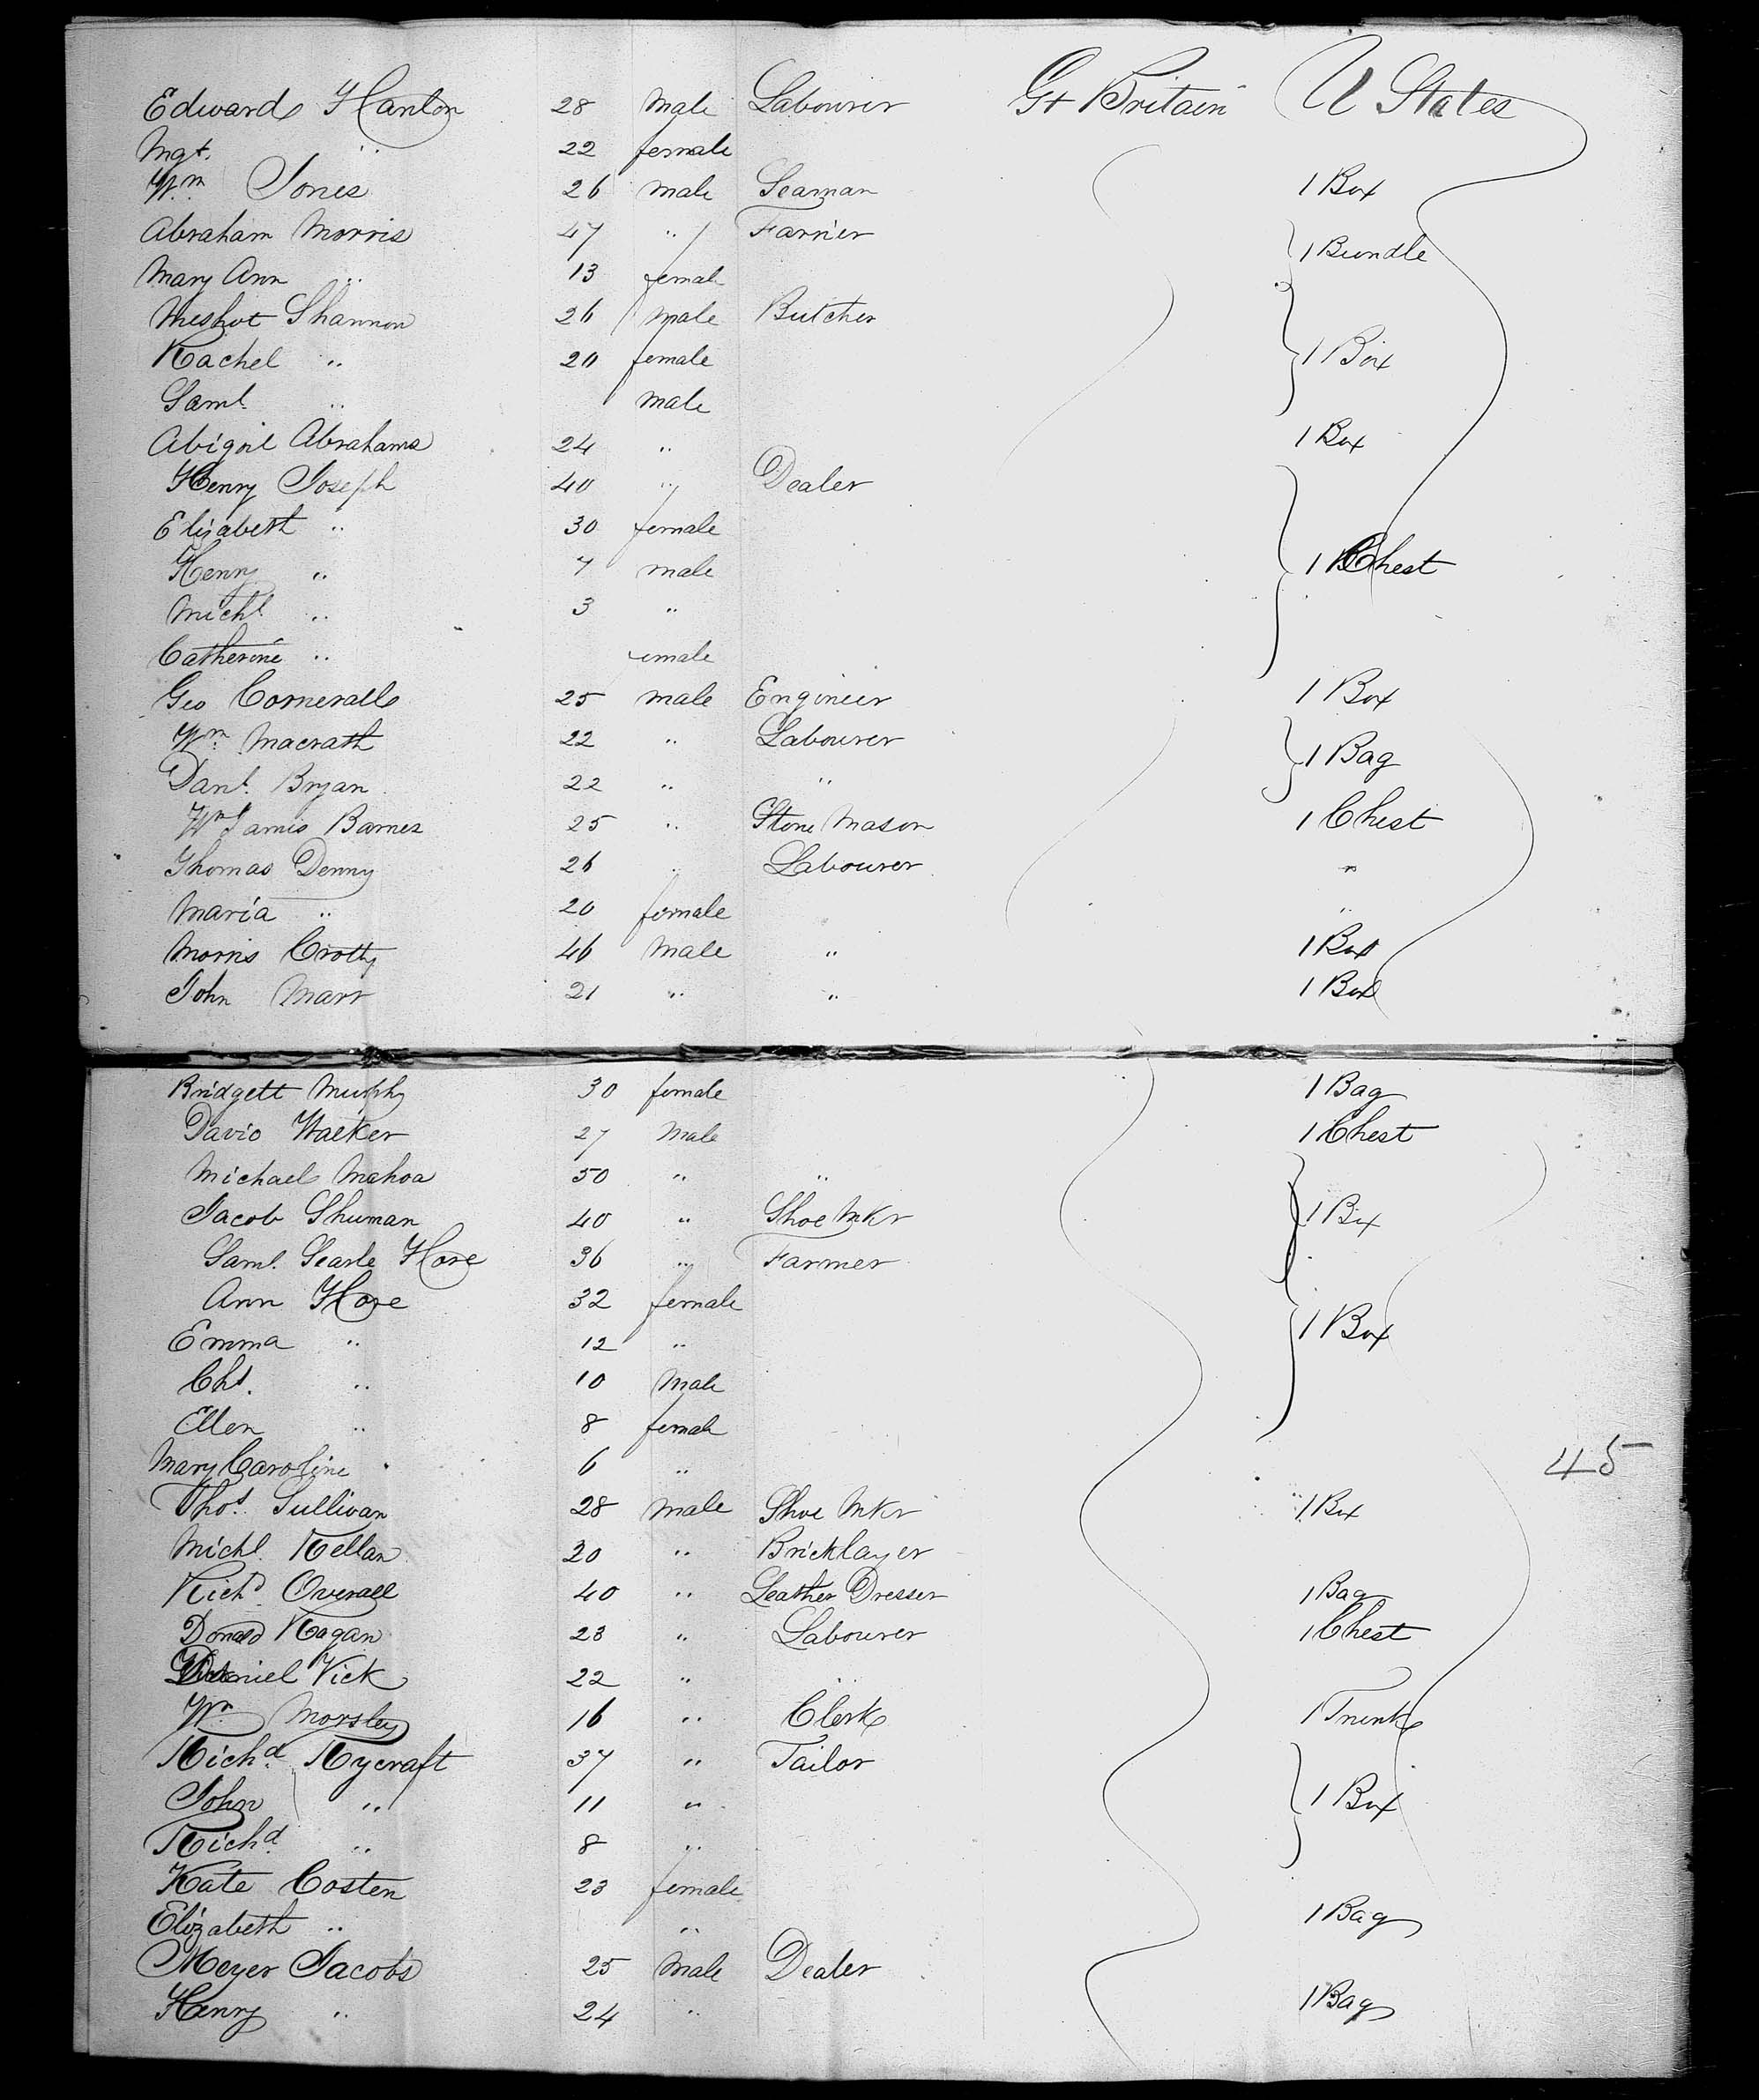 Edward Hanlon 28 Male Labourer Gt Britain U States
Mgt. " 22 female
Wm. Jones 26 male Seaman 1 Box
Abraham Morris 47 " Farrier 1 Bundle
Mary Ann " 13 female
Shannon 26 Male Butcher
Rachel " 20 female 1 Box
Saml. " male
Abigail Abrahams 24 " 1 Box
Henry Joseph 40 " Dealer
Elizabeth " 30 female
Henry " 7 male 1 Chest
Michl. " 3 "
Catherine " emale
Geo 25 male Engineer 1 Box
Wm. Macrath 22 " Labourer 1 Bag
Danl. Bryan 22 " "
Wm James Barnes 25 " Stone Mason 1 Chest
Thomas Denny 26 " Labourer "
Maria " 20 female "
Morris Crotty 46 Male " 1 Box
John Marr 21 " " 1 Box
Bridgett Murphy 30 female 1 Bag
David Walker 27 Male 1 Chest
Michael Mahoa 50 " "
Jacob Shuman 40 " Shoe Mkr 1 Box
Saml. Searle Hore 36 " Farmer
Ann Hore 32 female
Emma " 12 " 1 Box
Chs. " 10 Male
Ellen " 8 female
Mary Caroline " 6 " 45
Thos. Sullivan 28 male Shoe Mkr 1 Box
Michl. Kellan 20 " Bricklayer
Richd. Overall 40 " Leather Dresser 1 Bag
Donald Kagan 23 " Labourer 1 Chest
Daniel Vick 22 " "
Wm. Morsley 16 " Clerk 1 Trunk
Richd. Rycraft 37 " Tailor
John " 11 " 1 Box
Richd. " 8 "
Kate Costen 23 female
Elizabeth " " 1 Bag
Meyer Jacobs 25 Male Dealer
Henry " 24 " 1 Bag